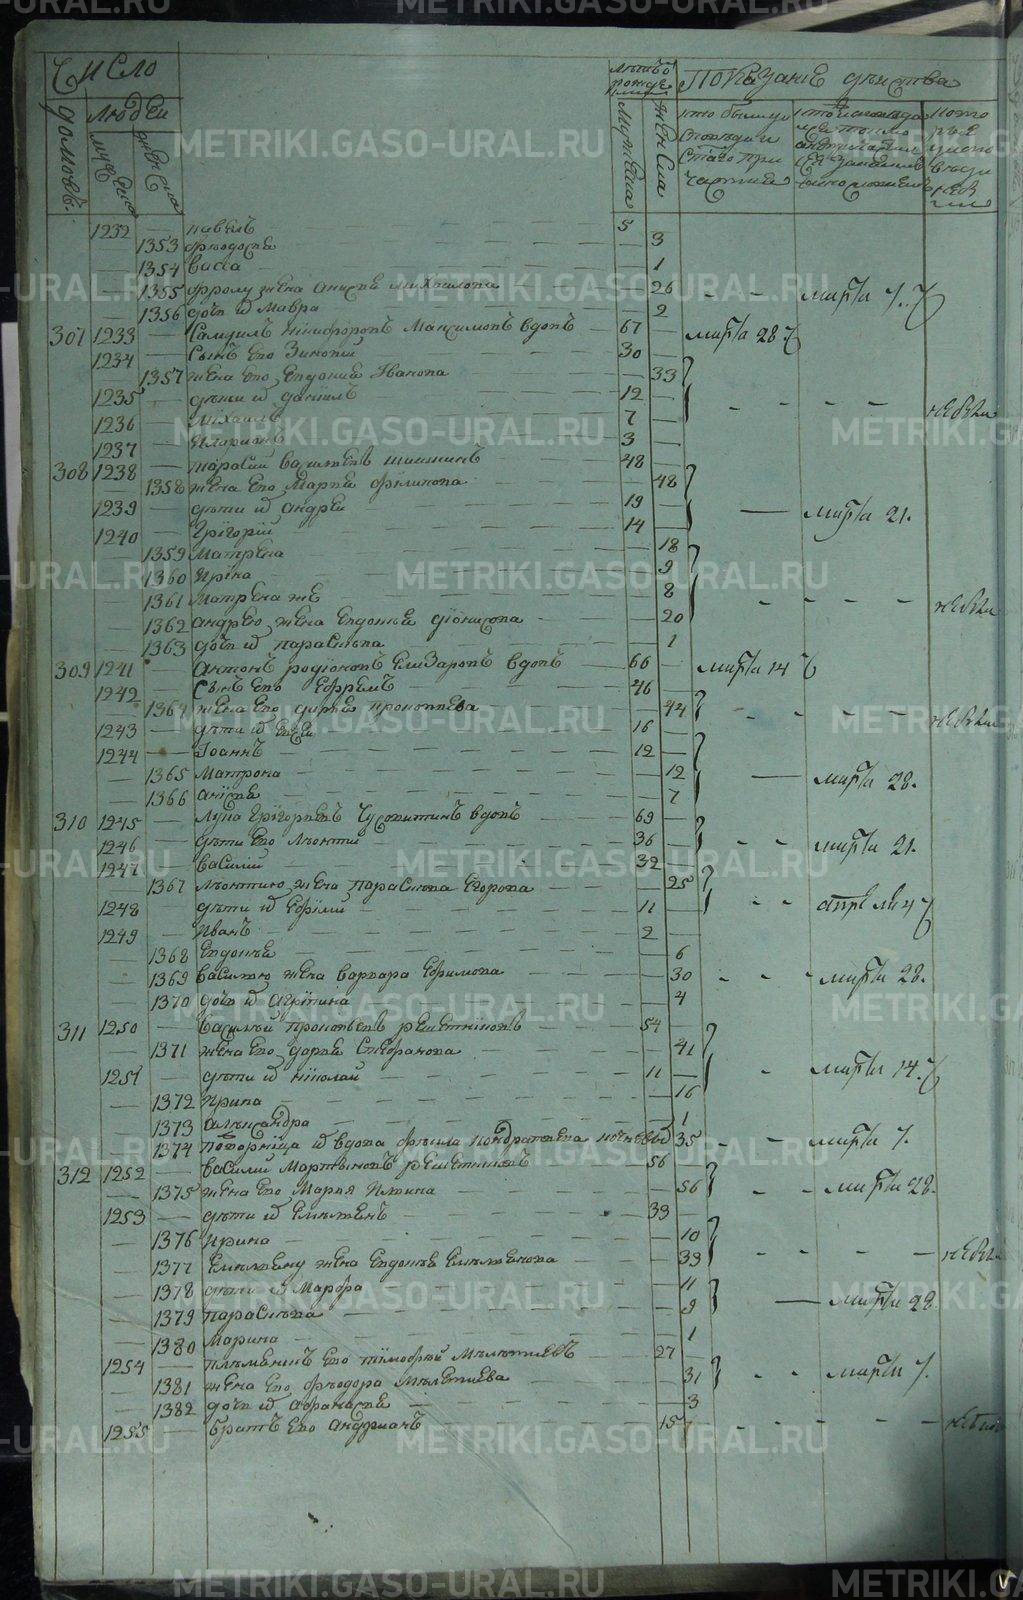 Число
домовъ.
людей
мужеска
женска
лѣтъ от рожденія
мужеска
женска
показаніе дѣйства
кто были у исповѣди и святаго причастия
1232 — павелъ 5
1353 Феодосія 3
1354 васса 1
1355 Фролу жена анисья михайлова 26 марта 7. ч
1356 дочь их мавра 2
307 1233 Самуилъ никифоровъ Максимовъ вдовъ 67 марта 28 ч
1234 сынъ его Зиновій 30
1357 жена его евдокия Иванова 33
1235 дѣти их данїилъ 12 не были
1236 міхаилъ 7
1237 Иларионъ 3
308 1238 тарасий васильевъ шишкинъ 48
1358 жена его Марья филипова 48
1239 дѣти их андрей 19 марта 21.
1240 Григорїй 14
1359 Матрена 18
1360 Ирина 9
1361 Матрена же 8 не были
1362 андрею жена евдокья дїонисова 20
1363 дочь их парасковья 1
309 1241 антонъ родіоновъ Елизаровъ вдовъ 66 марта 14 ч
1242 сынъ его ефремъ 46
1364 жена его дарья прокопьева 44 не были
1243 дѣти их евсей 16
1244 Іоаннъ 12
1365 Матрона 12 марта 28.
1366 анисья 7
310 1245 Лука Григорьевъ Чусовитинъ вдовъ 69
1246 дѣти его леонтий 36 марта 21.
1247 василий 32
1367 леонтию жена парасковья Егорова 25
1248 дѣти их ефїмий 11 апреля 4 ч
1249 Иванъ 2
1368 евдокья 6
1369 василью жена варвара ефимова 30 марта 28.
1370 дочь их агріпина 4
311 1250 василий прокопьевъ решетниковъ 54
1371 жена его дарья степанова 41
1251 дѣти их николай 11 марта 14. ч
1372 Ирина 16
1373 александра 1
1374 их вдова фекла кондратьева 35 марта 7.
312 1252 василий Мартыновъ решетниковъ 56
1375 жена его Мария Ильина 56 марта 28.
1253 дѣти их емельянъ 33
1376 Ирина 10
1377 емельяну жена евдокья емельянова 33 не были
1378 дѣти их Марфа 11
1379 парасковья 9 марта 28
1380 Марина 1
1254 племяникъ его тимофей Мелетиевъ 27
1381 жена его феодора Мелетиева 31 марта 7.
1382 дочь их афанасия 3
1255 братъ его андрианъ 15 не были
METRIKI.GASO-URAL.RU